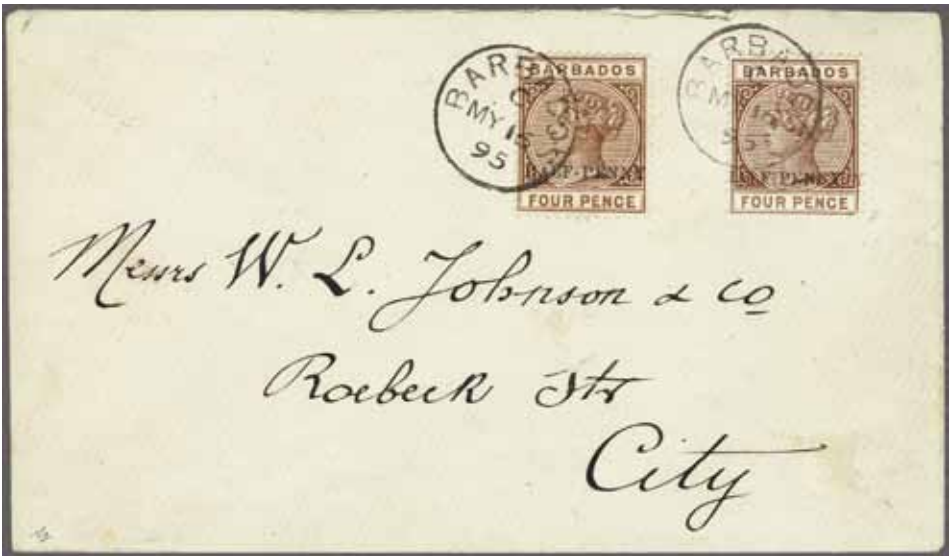 BARBADOS
MY 15
95
BARBADOS
HALF-PENNY
FOUR PENCE
BARBA
BARBADOS
F-PENNY
FOUR PENCE
Messrs W. L. Johnson & Co
Roebeck Str
City